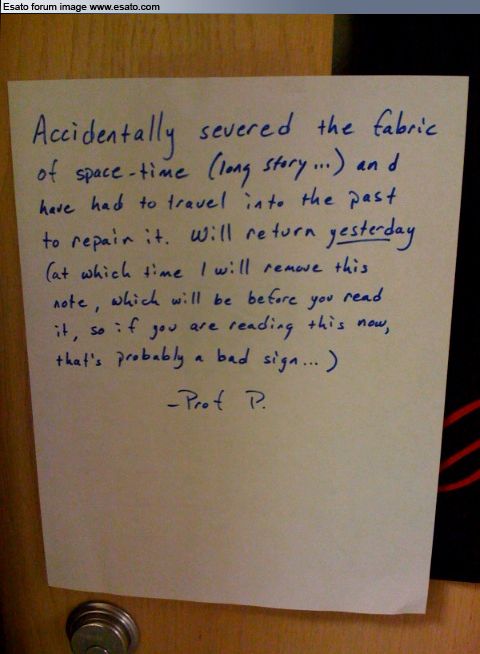 Esato forum image www.esato.com
Accidentally severed the fabric
of space-time (long story...) and
have had to travel into the past
to repair it. Will return yesterday
(at which time I will remove this
note, which will be before you read
it, so if you are reading this now,
that's probably a bad sign...)
-Prof P.